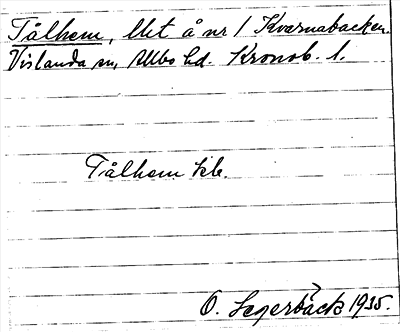 Tålhem, lht å nr 1 Kvarnabacken.
Vislanda sn, Allbo hd. Kronob. l.
Tålhem
O. Segerbäck 1935.